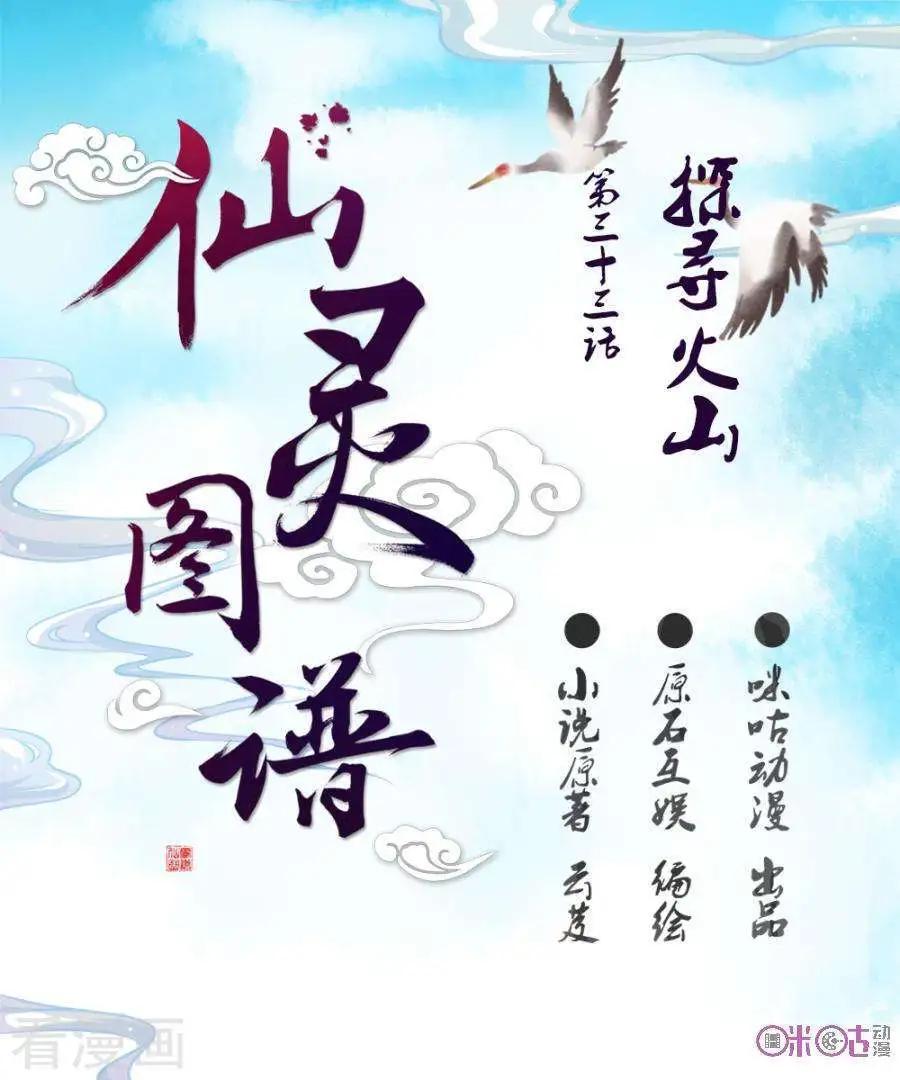 仙灵图谱
探寻火山
第三十三话
咪咕动漫 出品
原石互娱 编绘
小说原著 云芨
看漫画
咪咕动漫